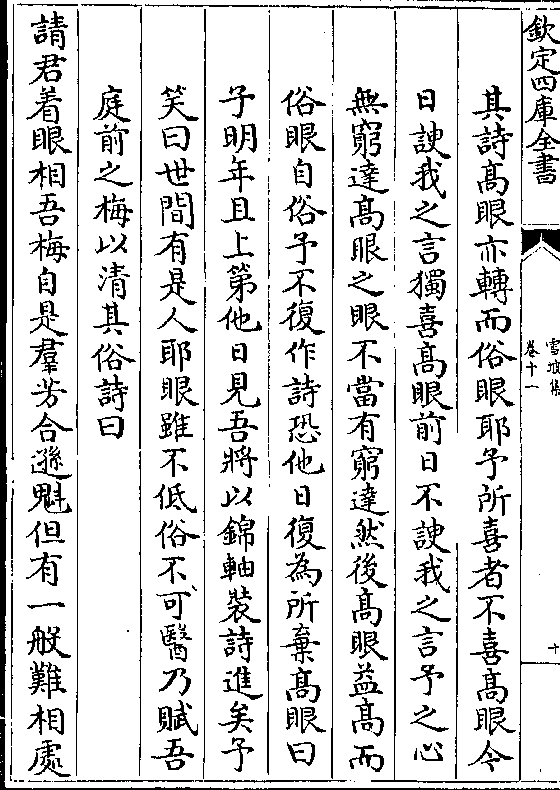 欽定四庫全書
雪坡集
卷十一
十
其詩髙眼亦轉而俗眼耶予所喜者不喜髙眼今
日諛我之言獨喜髙眼前日不諛我之言予之心
無窮達髙眼之眼不當有窮達然後髙眼益髙而
俗眼自俗予不復作詩恐他日復為所棄髙眼曰
子明年且上第他日見吾將以錦軸裝詩進矣予
笑曰世間有是人耶眼雖不低俗不可醫乃賦吾
庭前之梅以清其俗詩曰
請君着眼相吾梅自是羣芳合遜魁但有一般難相處